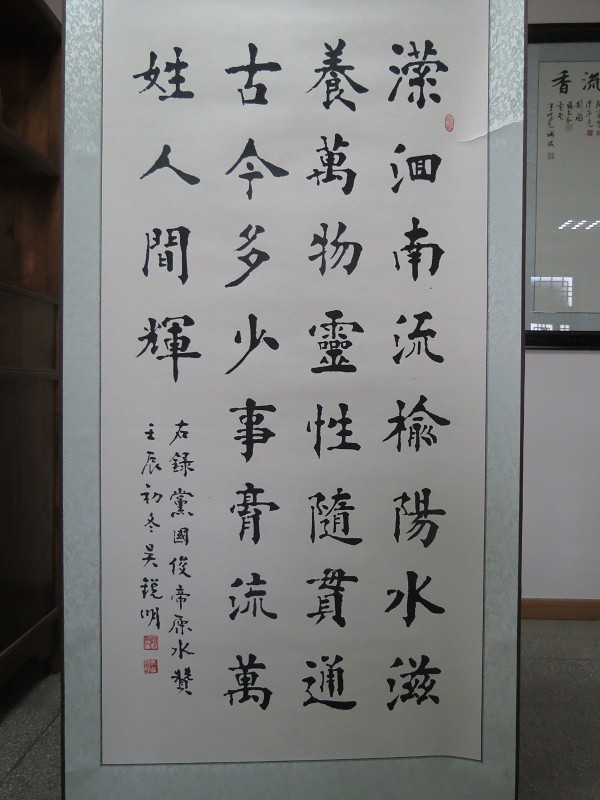 濚洄南流榆陽水滋
養萬物靈性隨貫通
古今多少事膏流萬
姓人間輝
右錄黨國俊帝原水贊
壬辰初冬吳銳明
流香